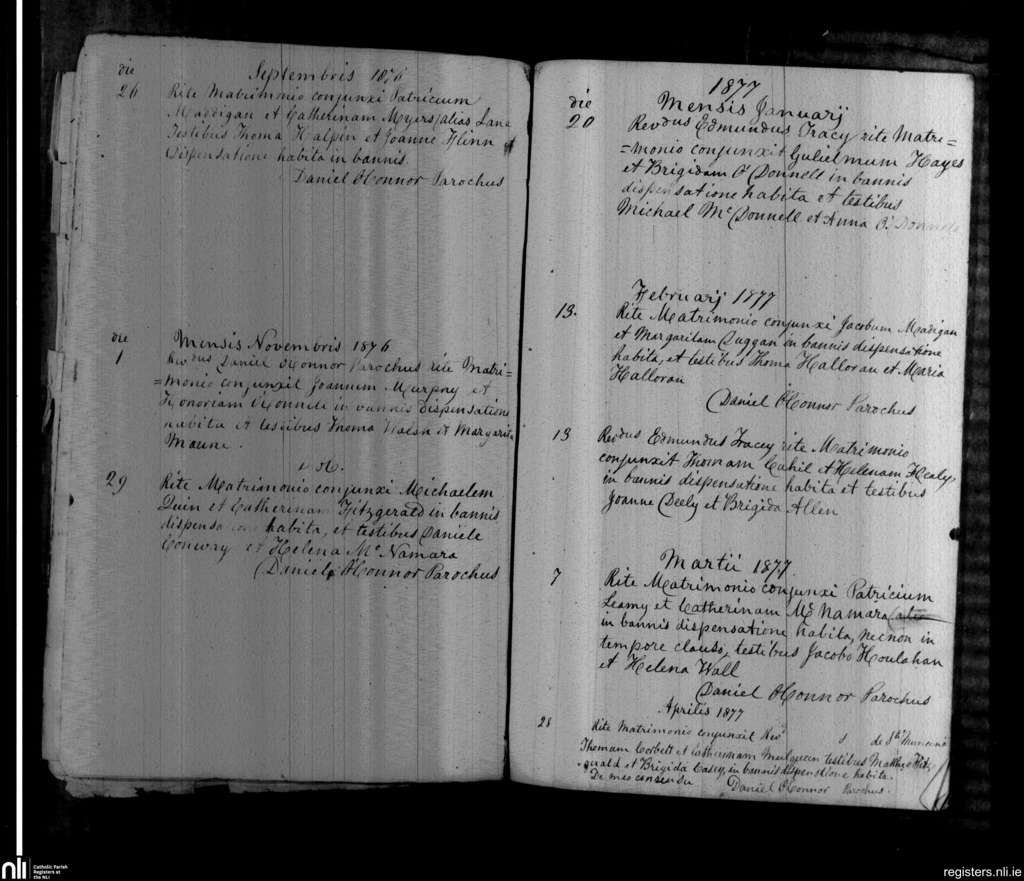 die
Septembris 1876
26 Rite Matrimonio conjunxi Patricium
Madigan et Catherinam Myers alias Lane
Testibus Thoma Halpin et Joanne Flinn
Dispensatione habita in bannis.
Daniel O'Connor Parochus
die
Mensis Novembris 1876
1 Revdus Daniel O'Connor Parochus rite Matri=
=monio conjunxit Joannem Murphy et
Honoriam in bannis dispensatione
habita et testibus Thoma Walsh et Margarita
29 Rite Matrimonio conjunxi Michaelem
Quin et Catherinam Fitzgerald in bannis
dispensa habita, et testibus Daniele
Conway et Helena Mc Namara
Daniel O'Connor Parochus
1877
die
Mensis Januarij
20 Revdus Edmundus Tracy rite Matri=
=monio conjunxit Gulielmum Hayes
et Brigidam O'Donnell in bannis
dispensatione habita et testibus
Michael Mc Donnell et Anna O'Donnell
Februarij 1877
13. Rite Matrimonio conjunxi Jacobum Madigan
et Margaritam Duggan in bannis dispensatione
habita, et testibus Thoma Halloran et Maria
Halloran
Daniel O'Connor Parochus
13 Revdus Edmundus Tracey rite Matrimonio
conjunxit Thomam Cahil et Helenam Healy,
in bannis dispensatione habita et testibus
Joanne Deely et Brigida Allen
Martii 1877
7 Rite Matrimonio conjunxi Patricium
Leamy et Catherinam Mc Namara
in bannis dispensatione habita, necnon in
tempore clauso, testibus Jacobo Houlahan
et Helena Wall
Daniel O'Connor Parochus
Aprilis 1877
28 Rite Matrimonio conjunxit Revd
Thomam Corbett et Catherinam Mulqueen testibus Mattheo Fitz
gerald et Brigida Casey, in bannis dispensatione habita.
De meo consensu Daniel O'Connor Parochus.
nli Catholic Parish
Registers at
the NLI
registers.nli.ie